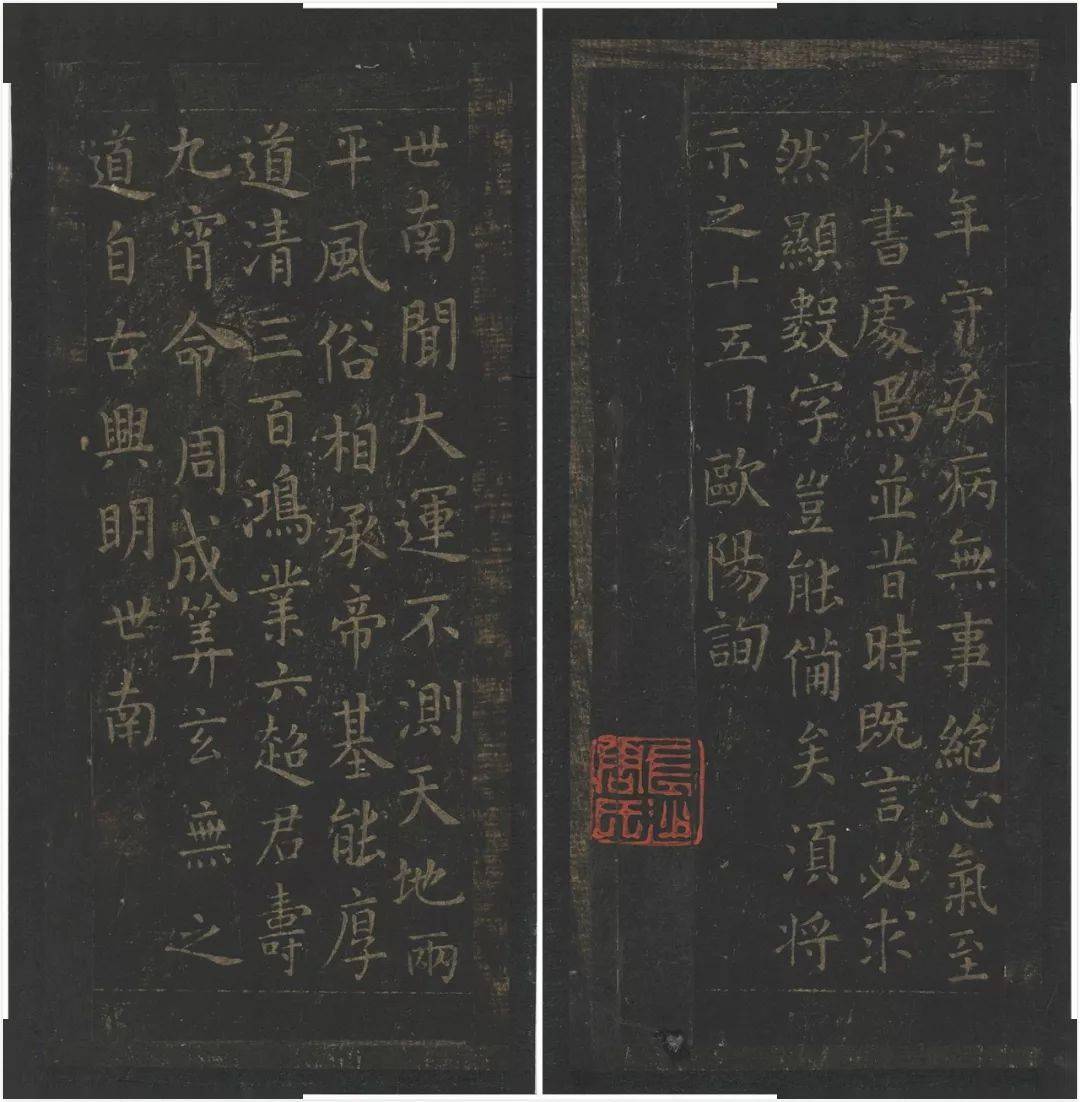 比年守疾病無事絶心氣至
於書處焉並昔時既言必求
然顯數字豈能備矣須将
示之十五日歐陽詢
世南聞大運不測天地兩
平風俗相承帝基能厚
道清三百鴻業六超君壽
九霄命周成筭玄無之
道自古興明世南